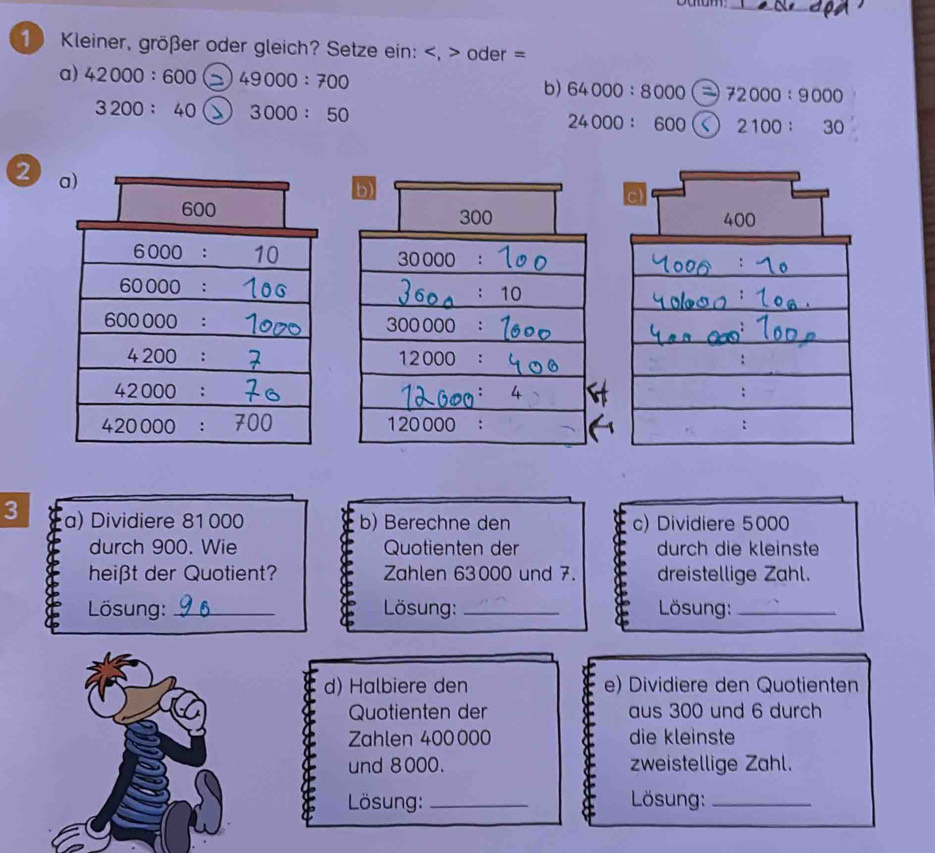 Datum:
1 Kleiner, größer oder gleich? Setze ein: <, > oder =
a) 42 000 : 600 = 49 000 : 700
b) 64 000 : 8 000 = 72 000 : 9 000
3 200 : 40 > 3 000 : 50
24 000 : 600 < 2 100 : 30
2
a)
600
6 000 : 10
60 000 : 100
600 000 : 1000
4 200 : 7
42 000 : 70
420 000 : 700
b)
300
30 000 : 100
3000 : 10
300 000 : 1000
12 000 : 400
12000 : 4
120 000 :
c)
400
4000 : 10
40000 : 100
400 000 : 1000
:
:
:
3
a) Dividiere 81 000
durch 900. Wie
heißt der Quotient?
Lösung: 90
b) Berechne den
Quotienten der
Zahlen 63 000 und 7.
Lösung:
c) Dividiere 5 000
durch die kleinste
dreistellige Zahl.
Lösung:
d) Halbiere den
Quotienten der
Zahlen 400 000
und 8 000.
Lösung:
e) Dividiere den Quotienten
aus 300 und 6 durch
die kleinste
zweistellige Zahl.
Lösung: